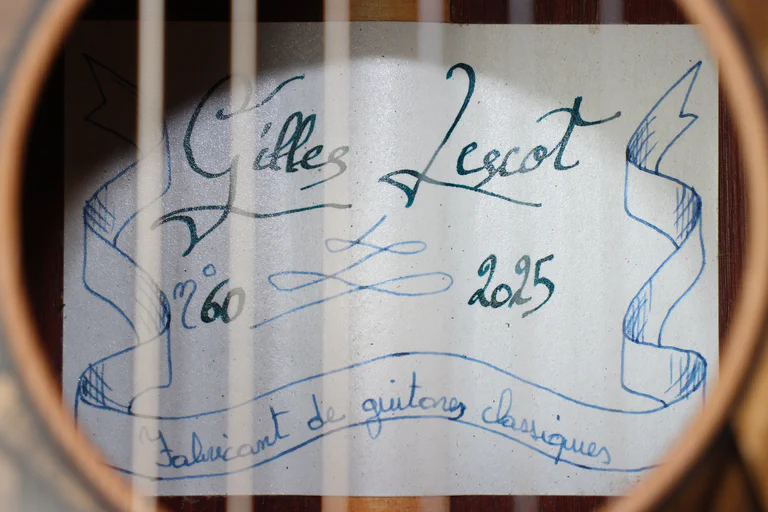 Gilles Lescot
n° 60 2025
Fabricant de guitares classiques